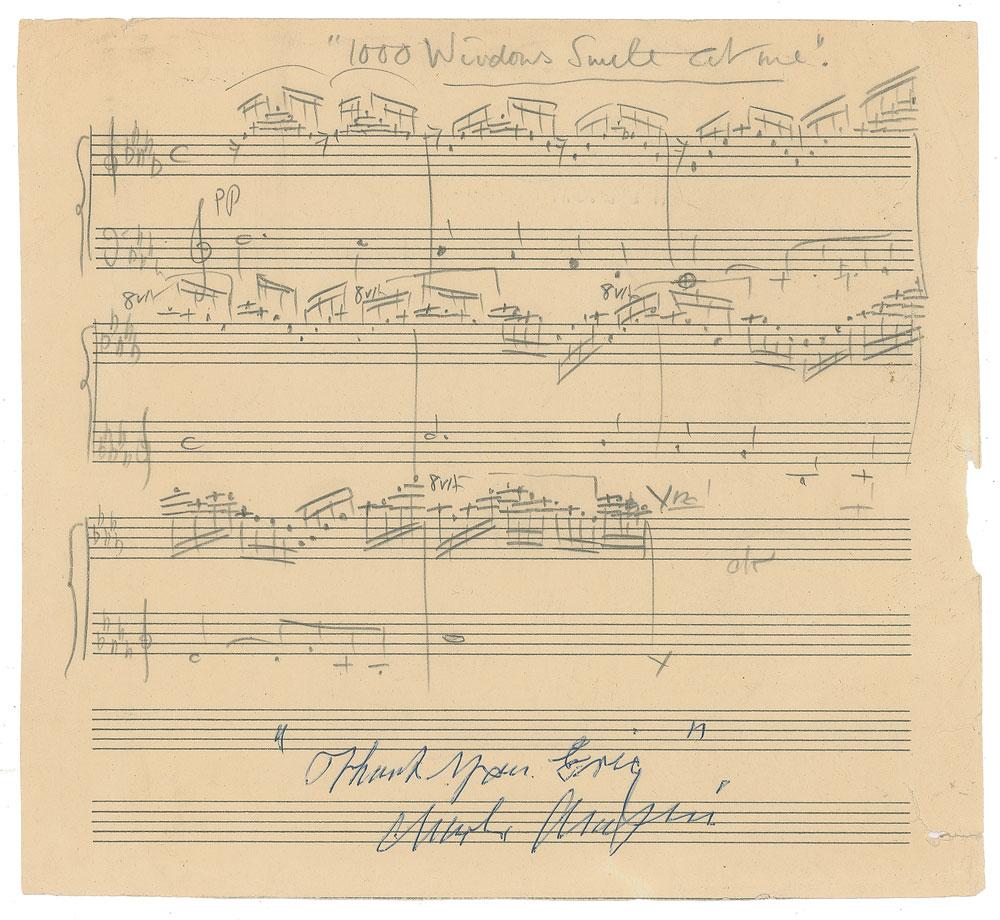 "1000 Windows Smile at me".
pp
8va
8va
8va
8va
etc
"Thank You Eric"
Charlie Chaplin